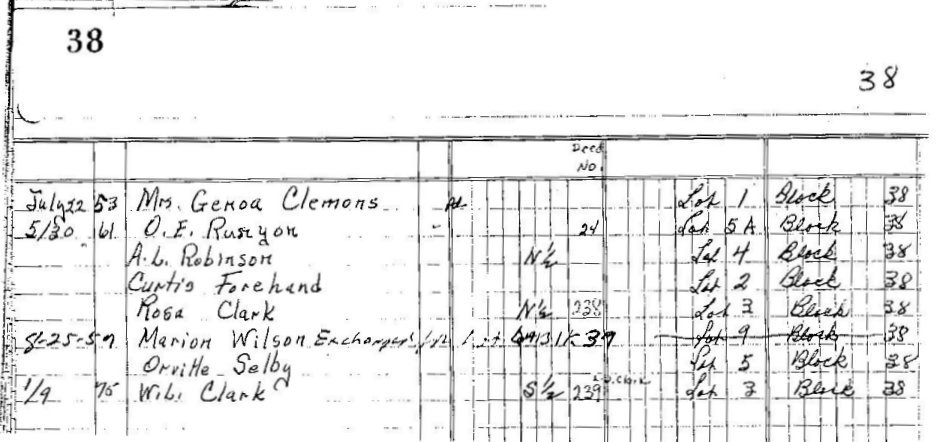 38
38
Deed
No.
July 22 53 Mrs. Genoa Clemons Pd. Lot 1 Block 38
5/30 61 O.E. Runyon - 24 Lot 5A Block 38
A.L. Robinson N½ Lot 4 Block 38
Curtis Forehand Lot 2 Block 38
Rosa Clark N½ 238 Lot 3 Block 38
8-25-59 Marion Wilson Exchanged for Lot 39 Lot 9 Block 38
Orville Selby Lot 5 Block 38
1/9 75 W.L. Clark S½ 239 Clark Lot 3 Block 38